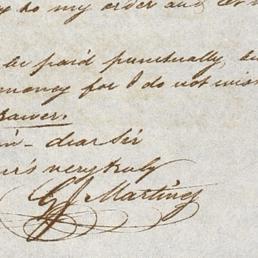 to my order and
be paid punctually,
money for I do not wish
Drawer.
dear Sir
very truly
G J Martinez